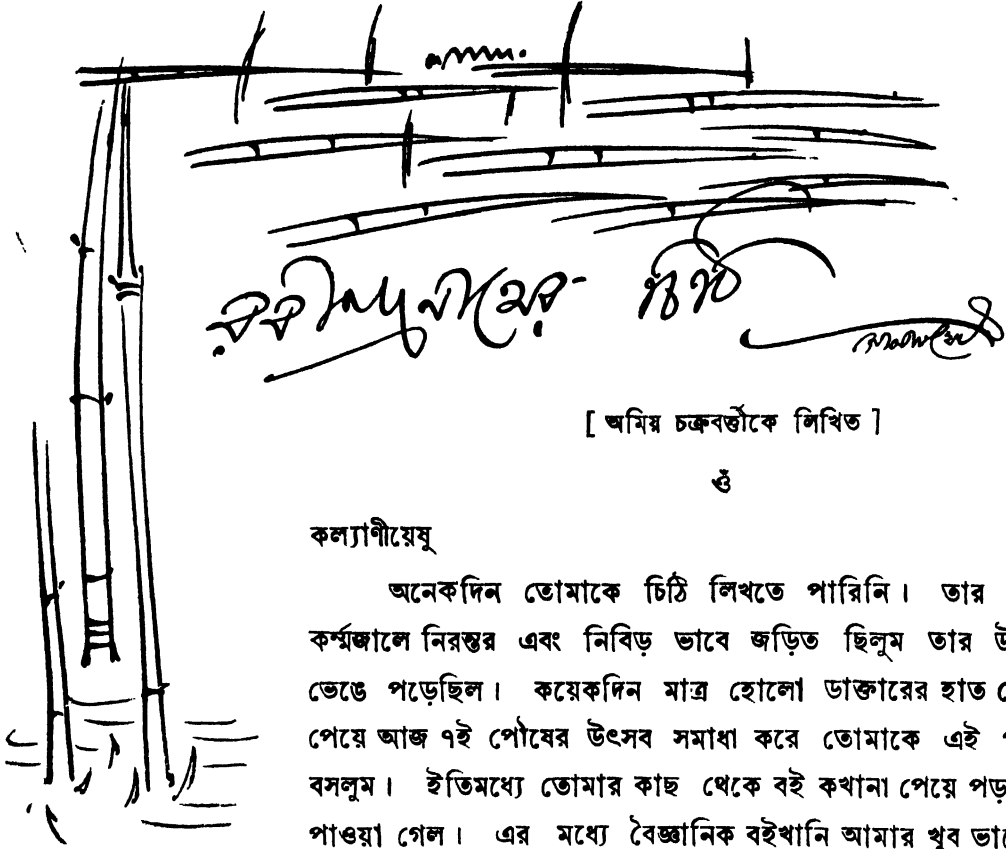 রবীন্দ্রনাথের চিঠি
[ অমিয় চক্রবর্ত্তীকে লিখিত ]
ওঁ
কল্যাণীয়েষু
অনেকদিন তোমাকে চিঠি লিখতে পারিনি। তার
কর্ম্মজালে নিরন্তর এবং নিবিড় ভাবে জড়িত ছিলুম তার
ভেঙে পড়েছিল। কয়েকদিন মাত্র হোলো ডাক্তারের হাত
পেয়ে আজ ৭ই পৌষের উৎসব সমাধা করে তোমাকে এই
বসলুম। ইতিমধ্যে তোমার কাছ থেকে বই কখানা পেয়ে
পাওয়া গেল। এর মধ্যে বৈজ্ঞানিক বইখানি আমার খুব